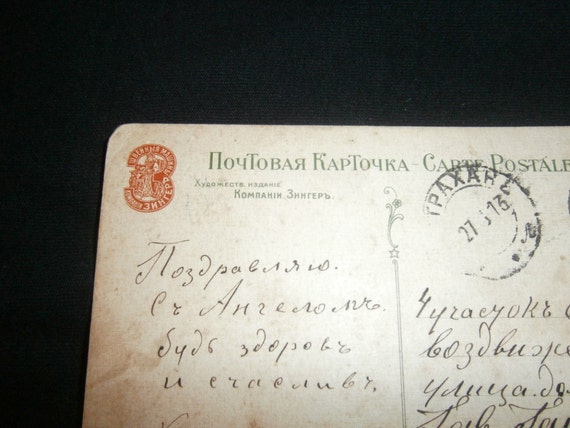 ШВЕЙНЫЯ МАШИНЫ
ЗИНГЕРЪ
ПОЧТОВАЯ КАРТОЧКА - CARTE POSTALE
ХУДОЖЕСТВ. ИЗДАНІЕ
КОМПАНІИ ЗИНГЕРЪ.
ТРАХАНЬ
27
13
Поздравляю.
Съ Ангеломъ.
будь здоровъ
и счасливъ.
4 участокъ
воздвиже
улица. до